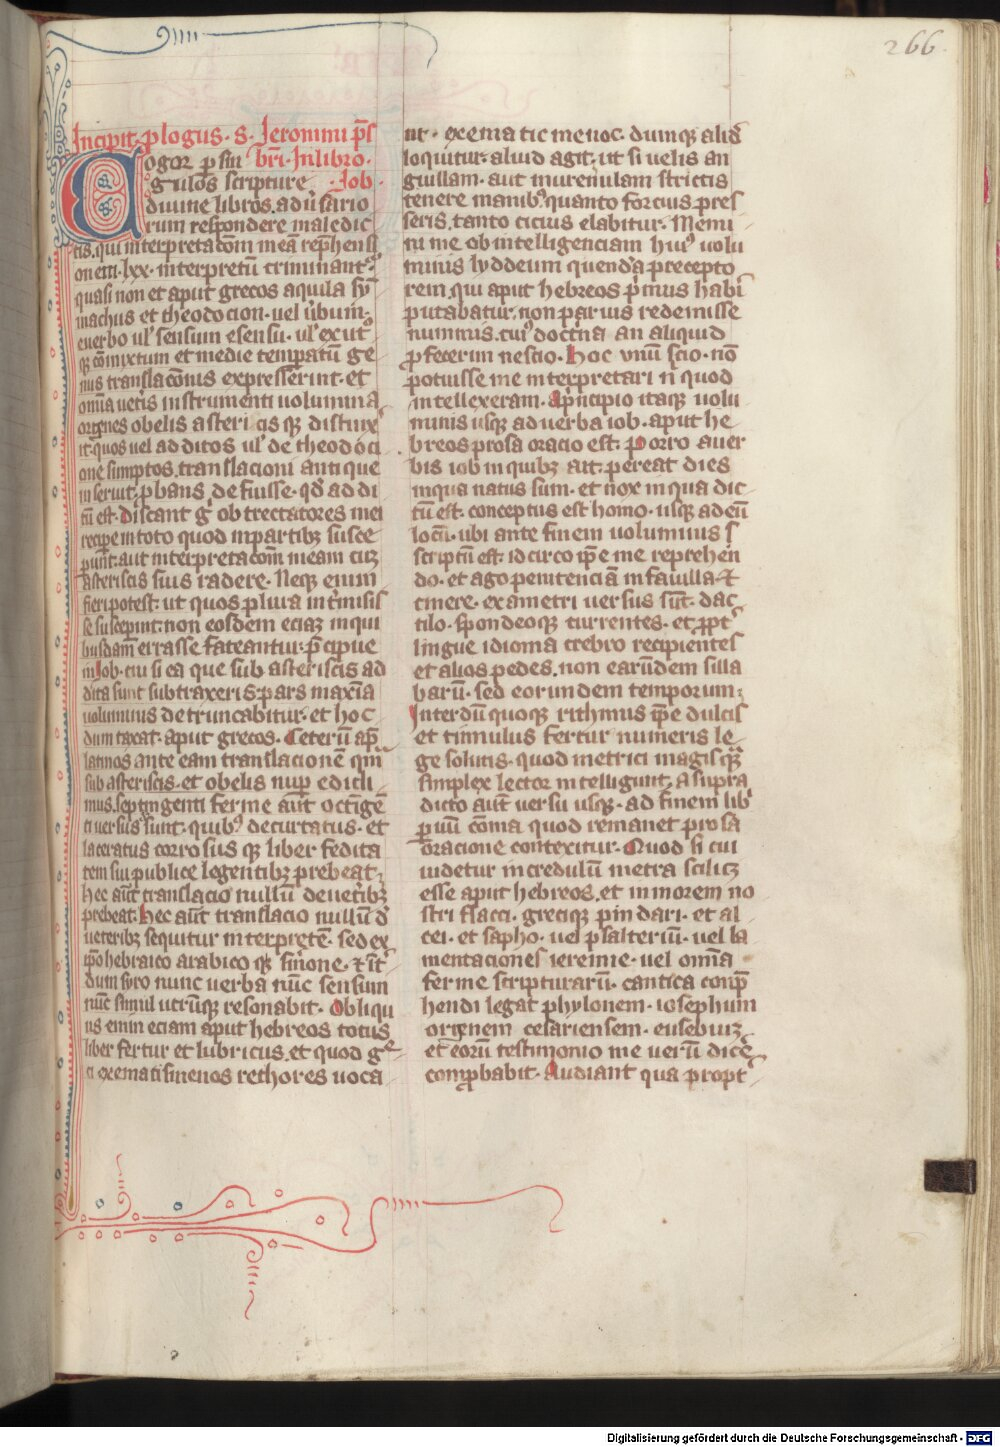 266
Incipit plogus. s. Jeronimi p̄s
bri. In libro.
Job.
Cogor p sin
gulos scripture
diuine libros. adu̇sario
rum respondere maledic
tis. qui interpretacōm meā rep̄hensi
onem. lxx. interpretū criminant᷑.
quasi non et aput grecos aquila sy
machus et theodocion. uel u̇bum.
e uerbo ul' sensum e sensu. ul' ex ut᷑
q̄ cōmixtum et medie temp̄atū ge
nus translacōnis expresserint. et
om̄ia uet̄is instrumenti uolumina
origenes obelis astericis q̄ distinx᷑
it. quos uel additos ul' de theodoci
one sumptos. translacioni antique
inseruit. pbans defuisse. qd̄ addi
tū est. Discant g° obtrectatores mei
recipe in toto quod in partibꝫ susce
perūt. aut interpretacōm meam cuꝫ
asteriscis suis radere. Neqꝫ enim
fieri potest. ut quos plura int̄misis
se suscepint. non eosdem eciaꝫ in qui
busdam̄ errasse fateantur. p̄cipue
in Job. cui si ea que sub asteriscis ad
dita sunt subtraxeris. pars maxīa
uoluminis detruncabitur. et hoc
dum taxat. aput grecos. Ceterū ap̄
latinos ante eam translacionē q̄m
sub asteriscis. et obelis nup edidi
mus. septingenti ferme aūt octīgē
ti uersus sunt. quibꝫ decurtatus. et
laceratus corrosus qꝫ liber fedita
tem sui publice legentibꝫ prebeat.
hec aūt translacio nullū de uet̄ibꝫ
prebeat. Hec aūt translacio nullū d̄
ueteribꝫ sequitur interpretē. sed ex
ip̄o hebraico arabico qꝫ s̄mone. ⁊ īt᷑
dum syro nunc uerba nūc sensum
nūc simul utrūqꝫ resonabit. Obliqu
us enim eciam aput hebreos totus
liber fertur et lubricus. et quod g᷑e
ci exematismenos rethores uoca
nt. exematic menoc. dumqꝫ aliđ
loquitur. aliud agit. ut si uelis an
guillam. aut murenulam strictis
tenere manibꝫ. quanto forcius pres
seris. tanto cicius elabitur. Memi
ni me ob intelligenciam hui᷒ uolu
minis lyddeum quendā precepto
rem. qui aput hebreos p̄mus habi᷑
putabatur. non paruis redemisse
nummis. cui᷒ doct̄na an aliquid
pfecerim nescio. Hoc vnū scio. nō
potuisse me interpretari n̄ quod
intellexeram. A p̄ncipio itaqꝫ uolu
minis usqꝫ ad uerba iob. aput he
breos prosa oracio est. Porro a uer
bis iob in quibꝫ ait. pereat dies
in qua natus sum. et nox in qua dic
tū est. conceptus est homo. usqꝫ ad eū
locū. ubi ante finem uoluminis s
scriptū est. idcirco ip̄e me reprehen
do. et ago penitenciā in fauilla ⁊
cinere. exametri uersus sūt. dac
tilo. spondeoqꝫ currentes. et ppt᷑
lingue idioma crebro recipientes
et alios pedes. non earūdem silla
barū. sed eorundem temporum.
Interdū quoqꝫ rithmus ip̄e dulcis
et tinnulus fertur numeris le
ge solutis. quod metrici magis q̄
simplex lector intelligunt. A supra
dicto aūt uersu usqꝫ. ad finem lib᷑
paruū cōma quod remanet prosa
oracione contexitur. Quod si cui
uidetur incredulū metra sciliꝫ
esse aput hebreos. et in morem no
stri flacci. greciqꝫ pindari. et al
cei. et sapho. uel psalteriū. uel la
mentaciones ieremie. uel om̄ia
ferme scripturarū. cantica conp̄
hendi legat phylonem. iosephum
origenem cesariensem. eusebiuꝫ
et eorū testimonio me uerū dicē
comprobabit. Audiant qua propt᷑
Digitalisierung gefördert durch die Deutsche Forschungsgemeinschaft - DFG